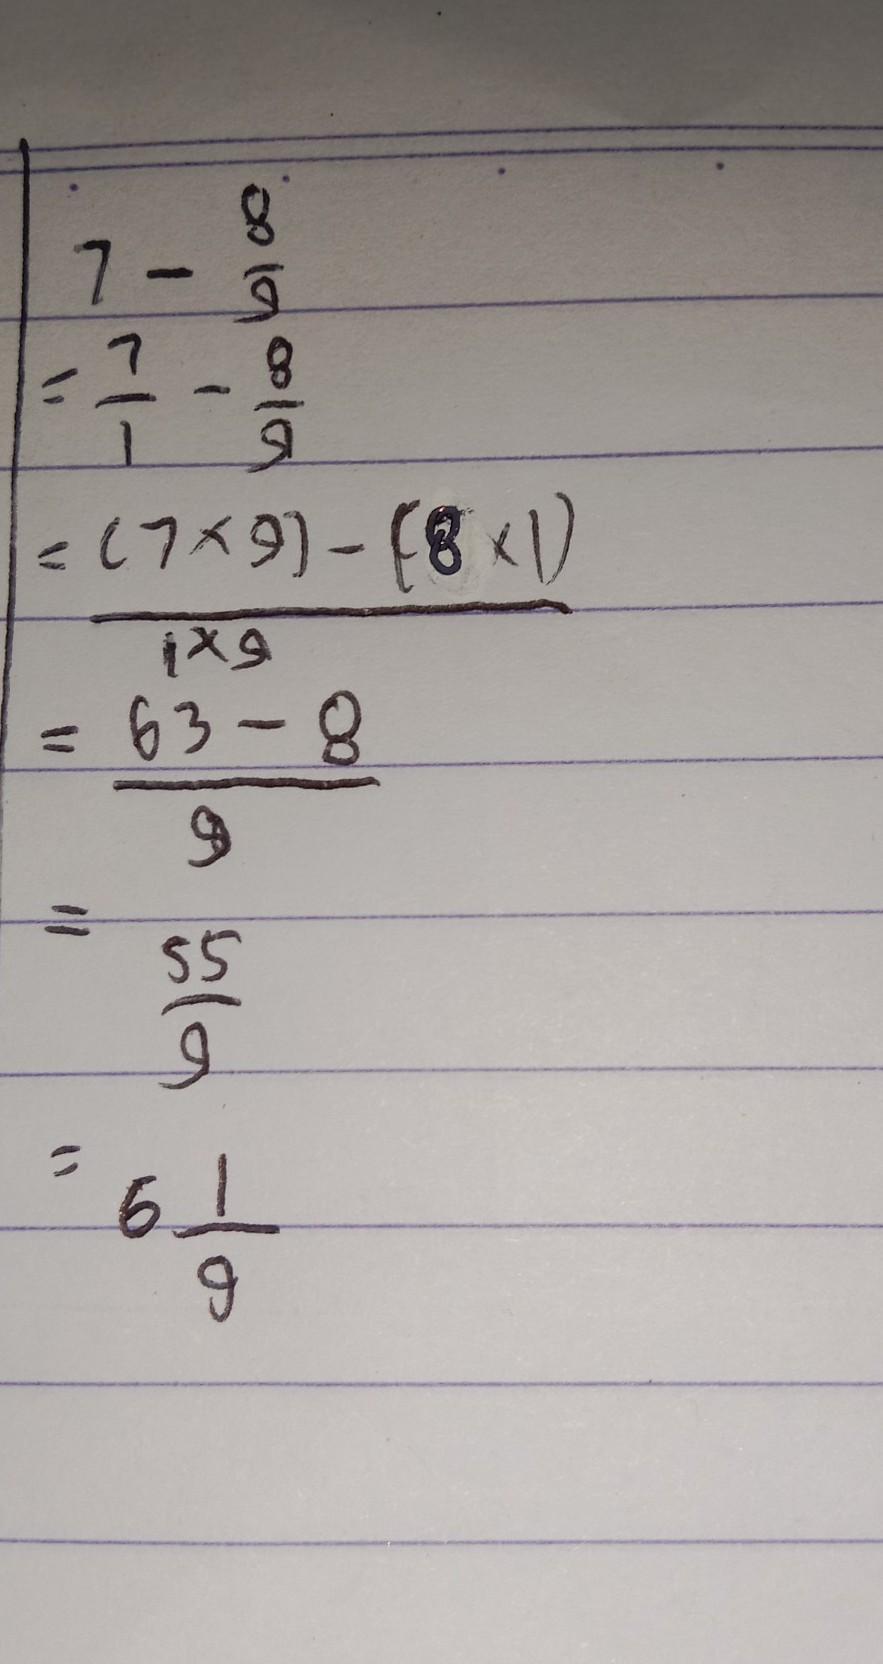 7 - 8/9
= 7/1 - 8/9
= (7×9) - (8×1)
1×9
= 63 - 8
9
= 55/9
= 6 1/9